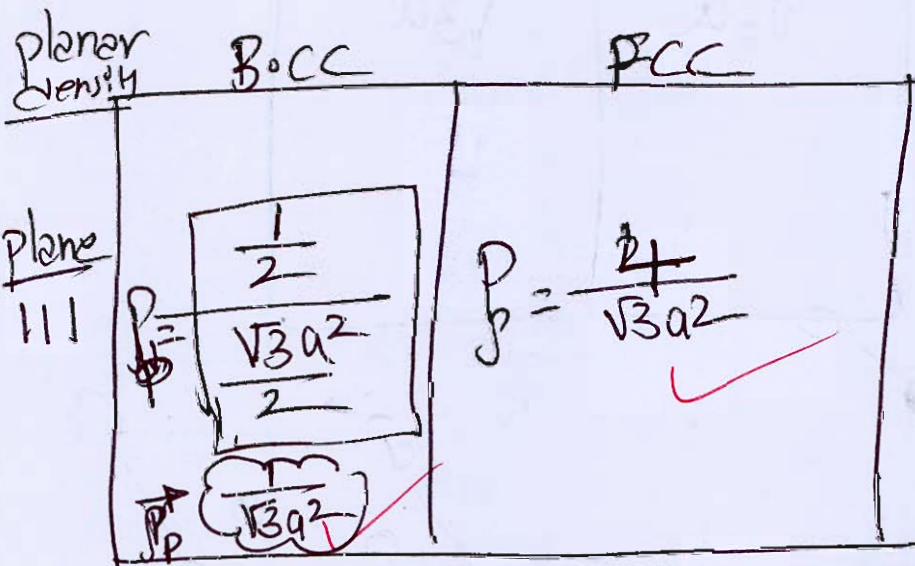 planar density B.CC FCC
plane 111
ρp = (1/2) / (√3a²/2)
ρp = 4/√3a²
ρp 1/√3a²